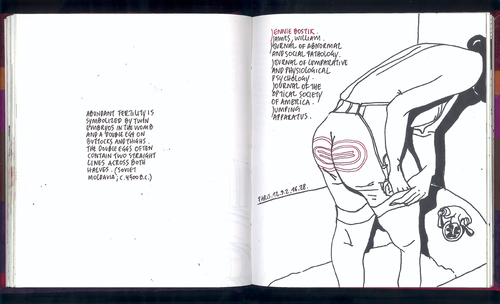 ABUNDANT FERTILITY IS
SYMBOLIZED BY TWIN
EMBRYOS IN THE WOMB
AND A DOUBLE EGG ON
BUTTOCKS AND THIGHS.
THE DOUBLE EGGS OFTEN
CONTAIN TWO STRAIGHT
LINES ACROSS BOTH
HALVES. (SOVIET
MOLDAVIA; C. 4500 B.C.)
JENNIE BOSTIK.
JAMES, WILLIAM.
JOURNAL OF ABNORMAL
AND SOCIAL PATHOLOGY.
JOURNAL OF COMPARATIVE
AND PHYSIOLOGICAL
PSYCHOLOGY.
JOURNAL OF THE
OPTICAL SOCIETY
OF AMERICA.
JUMPING
APPARATUS.
PARIS.